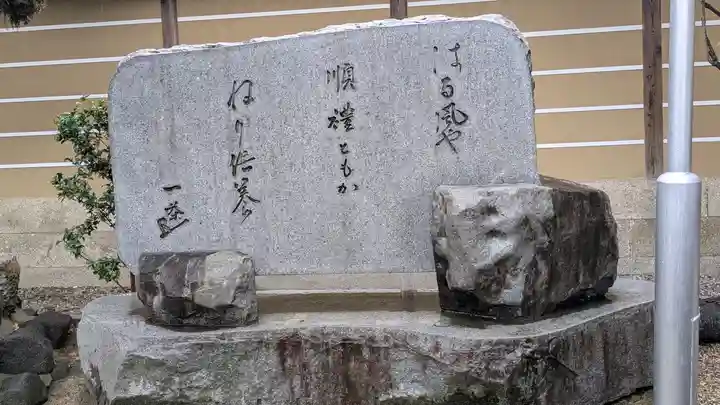 はる風や
順禮ともが
ねり供養
一茶